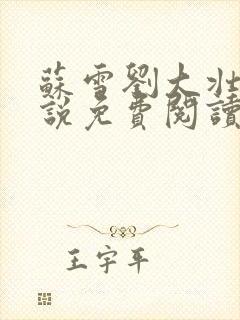 蘇雪劉大壯
說免費閱讀
王宇平